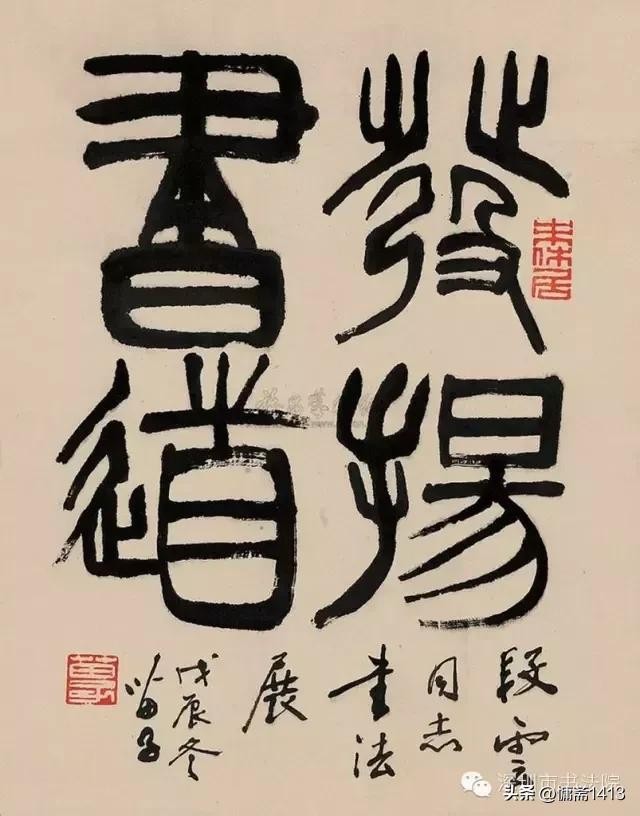 發揚
書道
段雲
同志
書法
展
戊辰冬
苗子
深圳市书法院
头条 @慵斋1413